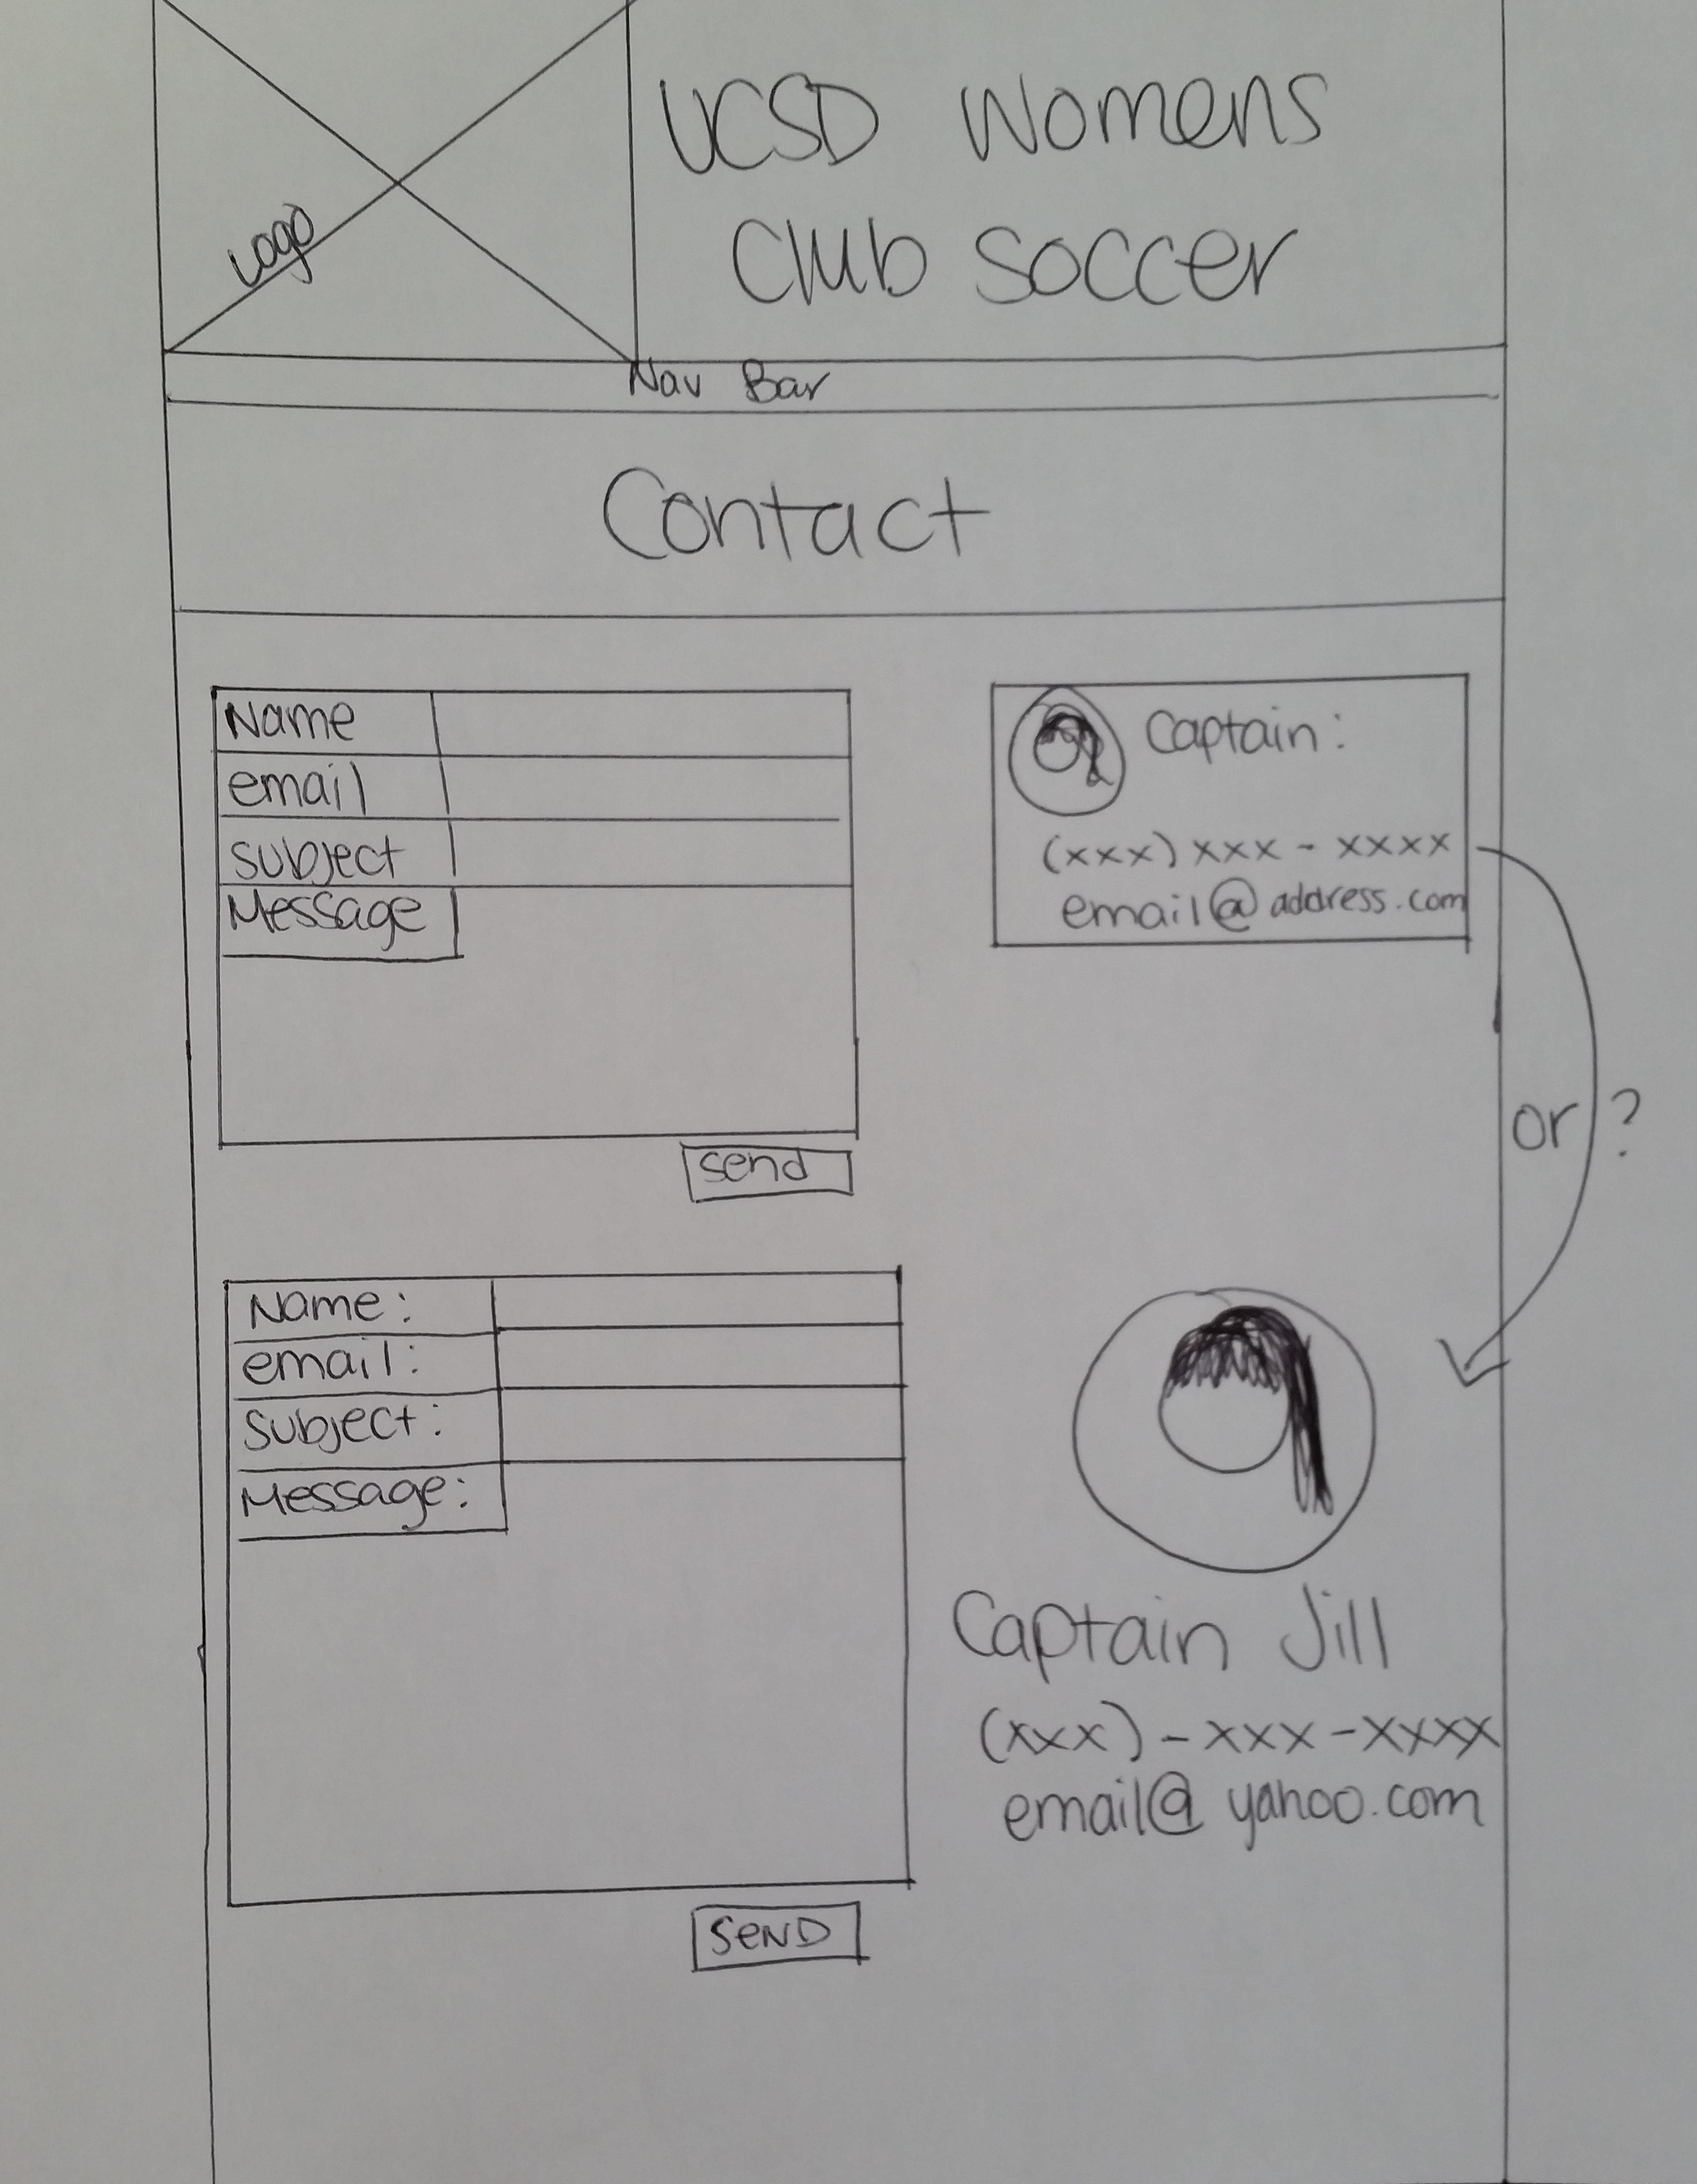 UCSD Womens
Club soccer
Logo
Nav Bar
Contact
Name
email
subject
Message
send
Captain:
(xxx) xxx - xxxx
email@address.com
or ?
Name:
email:
Subject:
Message:
SeND
Captain Jill
(xxx) - xxx - xxxx
email@yahoo.com